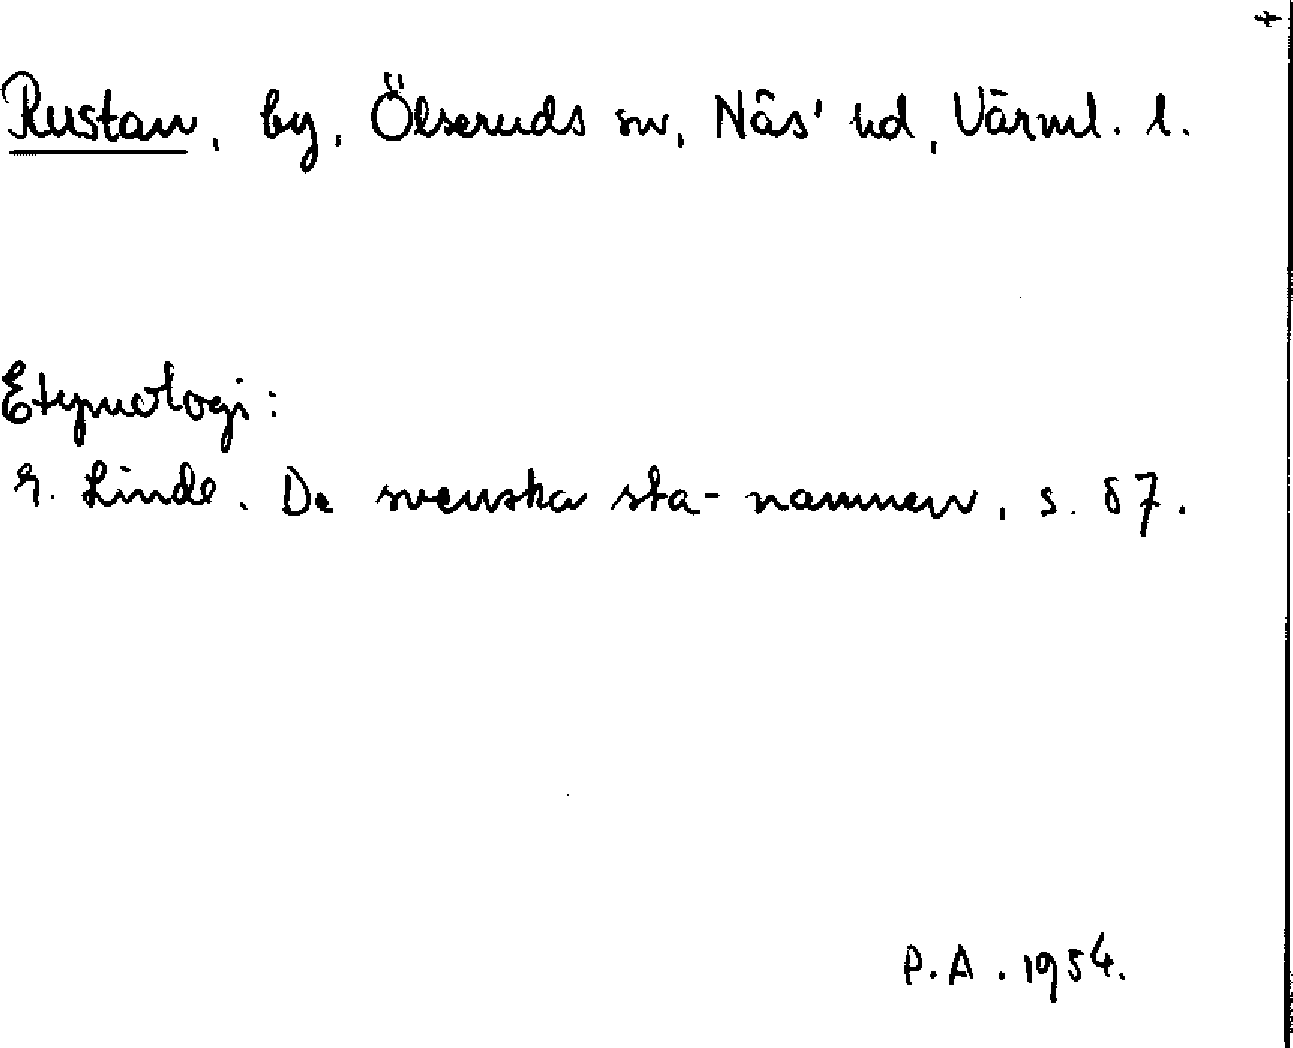 Rustan, by, Ölseruds sn, Näs' hd, Värml. l.
Etymologi:
G. Linde. De svenska sta-namnen, s. 87.
P.A. 1954.